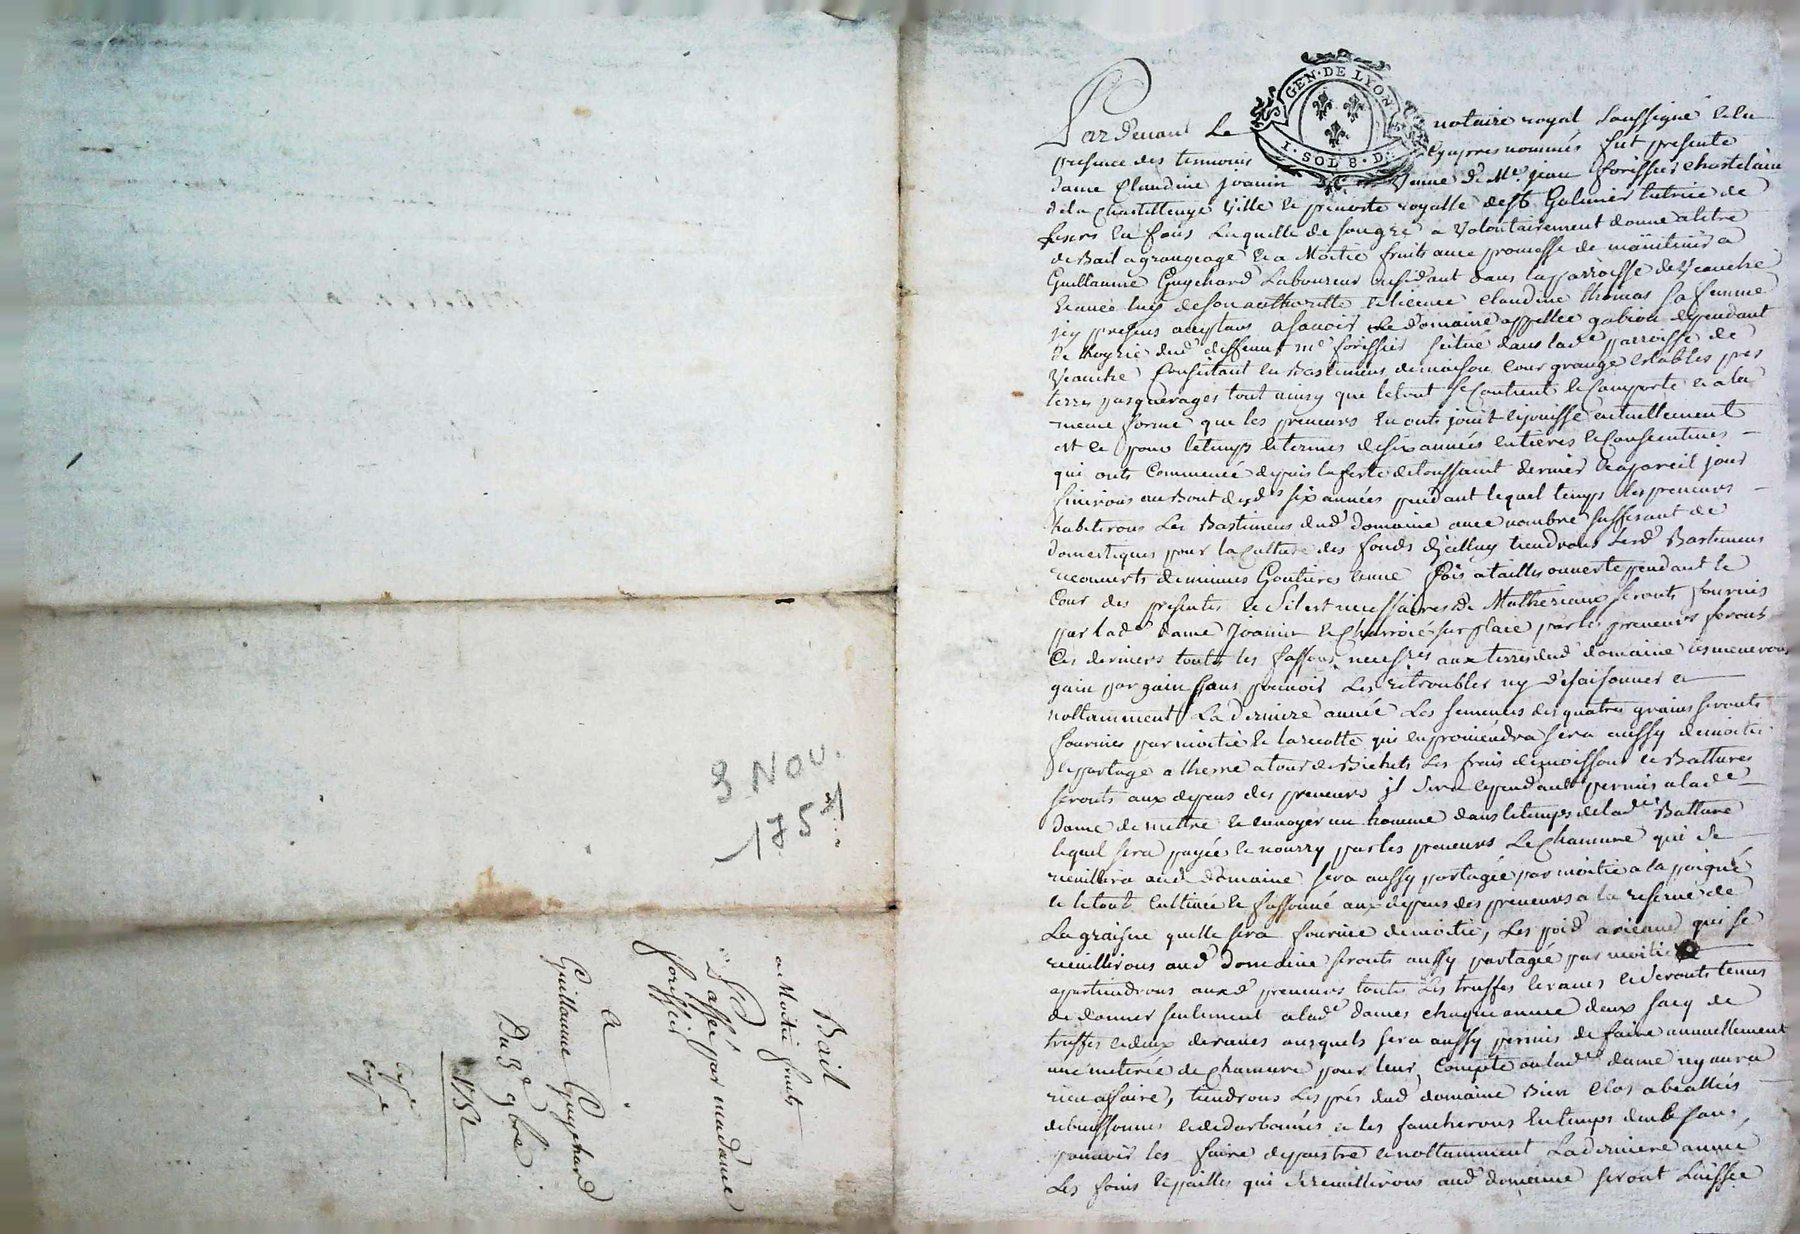 8 NOV.
1754
Bail
a Moitié fruits
Passée par madame
forissier
a
Guillaume Guychard
Du 3e 9bre
GEN · DE LYON
I · SOL 8 · D ·
Pardevant Le notaire royal soussigné et en
presence des temoins cyapres nommés fut presente
dame Claudine joanin veuve de Me jean forissier chastelain
de la Chastellenye ville et prevosté royalle de St Galmier tutrice de
Laquelle de son gré a volontairement donné a titre
de Bail a grangeage et a Moitié fruits avec promesse de maintenir a
Guillaume Guychard Laboureur residant dans la parroisse de Veauche
et avec luy de son authorité et licence Claudine thomas sa femme
icy presens acceptans a sçavoir Le domaine appellee gabion dependant
de hoyrie dud deffunt me forissier scitué dans lade parroisse de
Veauche Consistant en Bastimens de maison Cour grange estables prés
terres pasquerages tout ainsy que le tout se Contient et Comporte et a la
meme forme que les preneurs en onts jouit et jouisse actuellement
et ce pour le temps et termes de six années entieres et Consecutives
qui onts Commencé depuis la feste de toussaint dernier et a pareil jour
finirons au Bout desds six années pendant lequel temps les preneurs
habiterons Les Bastimens dud domaine avec nombre suffisant de
domestiques pour la Culture des fonds d'jcelluy tiendrons Lesd Bastimens
recouverts de mimes Goutieres une fois a taille ouverte pendant le
Cour des presentes et S'il est necessaires de Matheriaux serons fournis
par lade dame Joanin et Charroié sur place par les preneurs ferons
Ces derniers touts les fassons necessres aux terres dud domaine les menerons
gain par gain sans pouvoir Les retroubler ny desaisonner et
nottamment La derniere année Les semences des quatres grains seronts
fournies par moitié et la recolte qui en proviendra sera aussy de moitié
et partagé a therme a tour de Bichets Les frais de moisson et Batture
seronts aux depens des preneurs il sera cependant permis a lade
dame de mettre et envoyer un homme dans le temps de lade Batture
lequel sera payée et nourry par les preneurs Le Chanvre qui se
recuillira aud domaine sera aussy partagée par moitié a la poigné
et le tout Cultivé et fassonné aux depens des preneurs a la reserve de
La graisne quelle sera fournie de moitié, Les poid qui se
recuillirons aud domaine seronts aussy partagée par moitié
apartiendrons auxd preneurs toutes Les truffes et raves et seronts tenus
de donner seulement a lade dame chaque année deux sacq de
truffes et deux de raves auxquels sera aussy permis de faire annuellement
une meterée de Chanvre pour leur Compte ou lade dame ny aura
rien affaire, tiendrons Les prés dud domaine Bien Clos a bealliés
debuissonnés et dedarbonnés et les faucherons en temps deub sans
pouvoir les faire depaistre et nottamment La derniere année
Les foins et pailles qui se recuillirons aud domaine seront Laissée